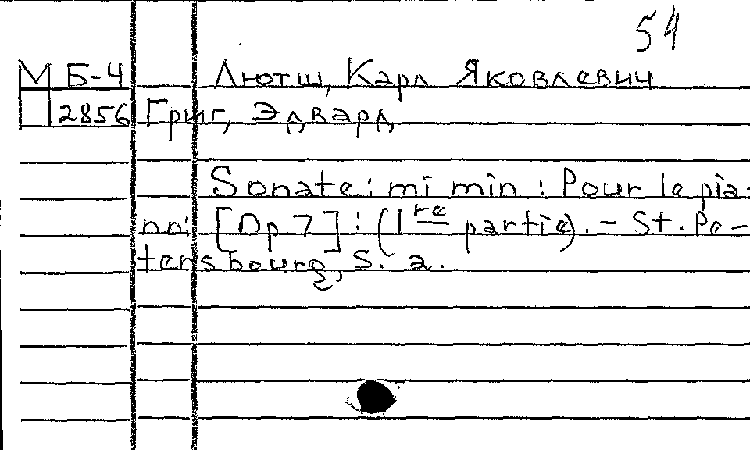 54
М Б-4 Лютш, Карл Яковлевич
2856 Григ, Эдвард
Sonate: mi min: Pour le pia-
no: [Op 7]: (1re partie). - St. Pe-
tersbourg, S. a.